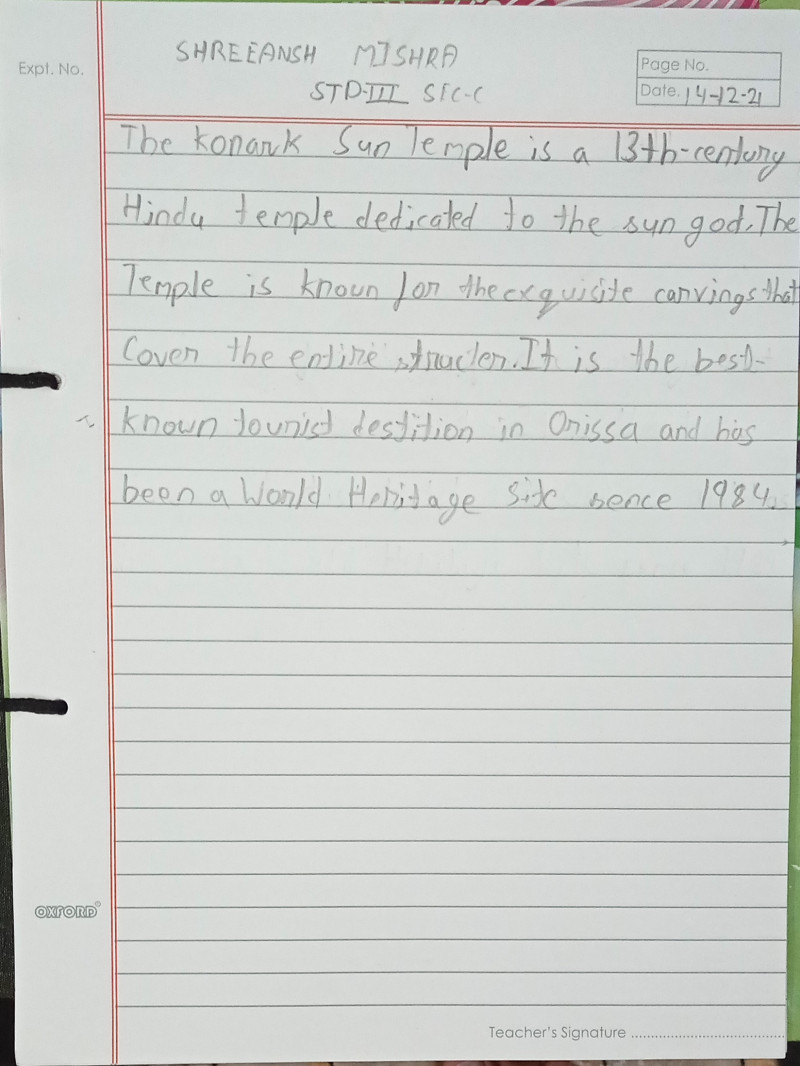 SHREEANSH MISHRA
Expt. No.
Page No.
STD-III SEC-C
Date. 14-12-21
The Konark Sun Temple is a 13th-century
Hindu temple dedicated to the sun god. The
Temple is known for the exquisite carvings that
Cover the entire structer. It is the best-
known tourist destition in Orissa and has
been a World Heritage Site sence 1984.
OXFORD
Teacher's Signature